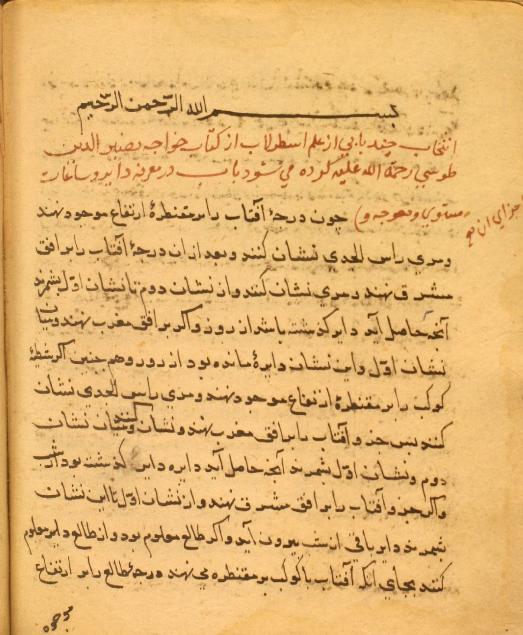 بسم الله الرحمن الرحيم
انتخاب چند بابی از علم اسطرلاب از کتاب خواجه نصیر الدین
طوسی رحمة الله علیه کرده می شود باب در معرفة دایر و ساعات
مستوی و معوجه و اجزای آن
چون درجۀ آفتاب را بر مقنطرۀ ارتفاع موجود نهند
و مری راس الجدی نشان کنند و بعد از ان درجۀ آفتاب را بر افق
مشرق نهند و مری نشان کنند و از نشان دوم تا نشان اول بشمرند
آنچه حاصل آید دایر گذشته باشد از روز و اگر بر افق مغرب نهند و میان
نشان اول و این نشان دایرۀ مانده بود از روز و همچنین اگر شظیۀ
کوکب را بر مقنطرۀ ارتفاع موجود نهند و مری راس الجدی نشان
کنند پس جزو آفتاب را بر افق مغرب نهند و نشان کنند و میان نشان
دوم و نشان اول شمرند آنچه حاصل آید دایره دایر گذشته بود از شب
و اگر جزو آفتاب را بر افق مشرق نهند و از نشان اول تا این نشان
شمرند دایر باقی از شب بیرون آید و اگر طالع معلوم بود و از طالع دایر معلوم
کنند بجای آنکه آفتاب یا کوکب بر مقنطره می نهند درجۀ طالع را بر ارتفاع